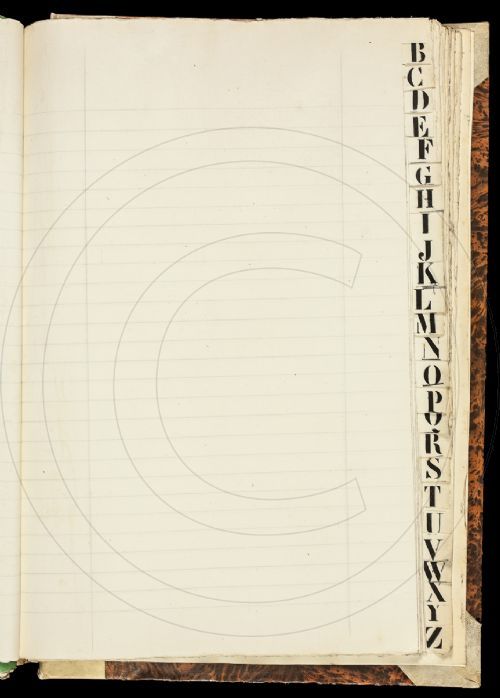 B
C
D
E
F
G
H
I
J
K
L
M
N
O
P
R
S
T
U
V
W
X
Y
Z